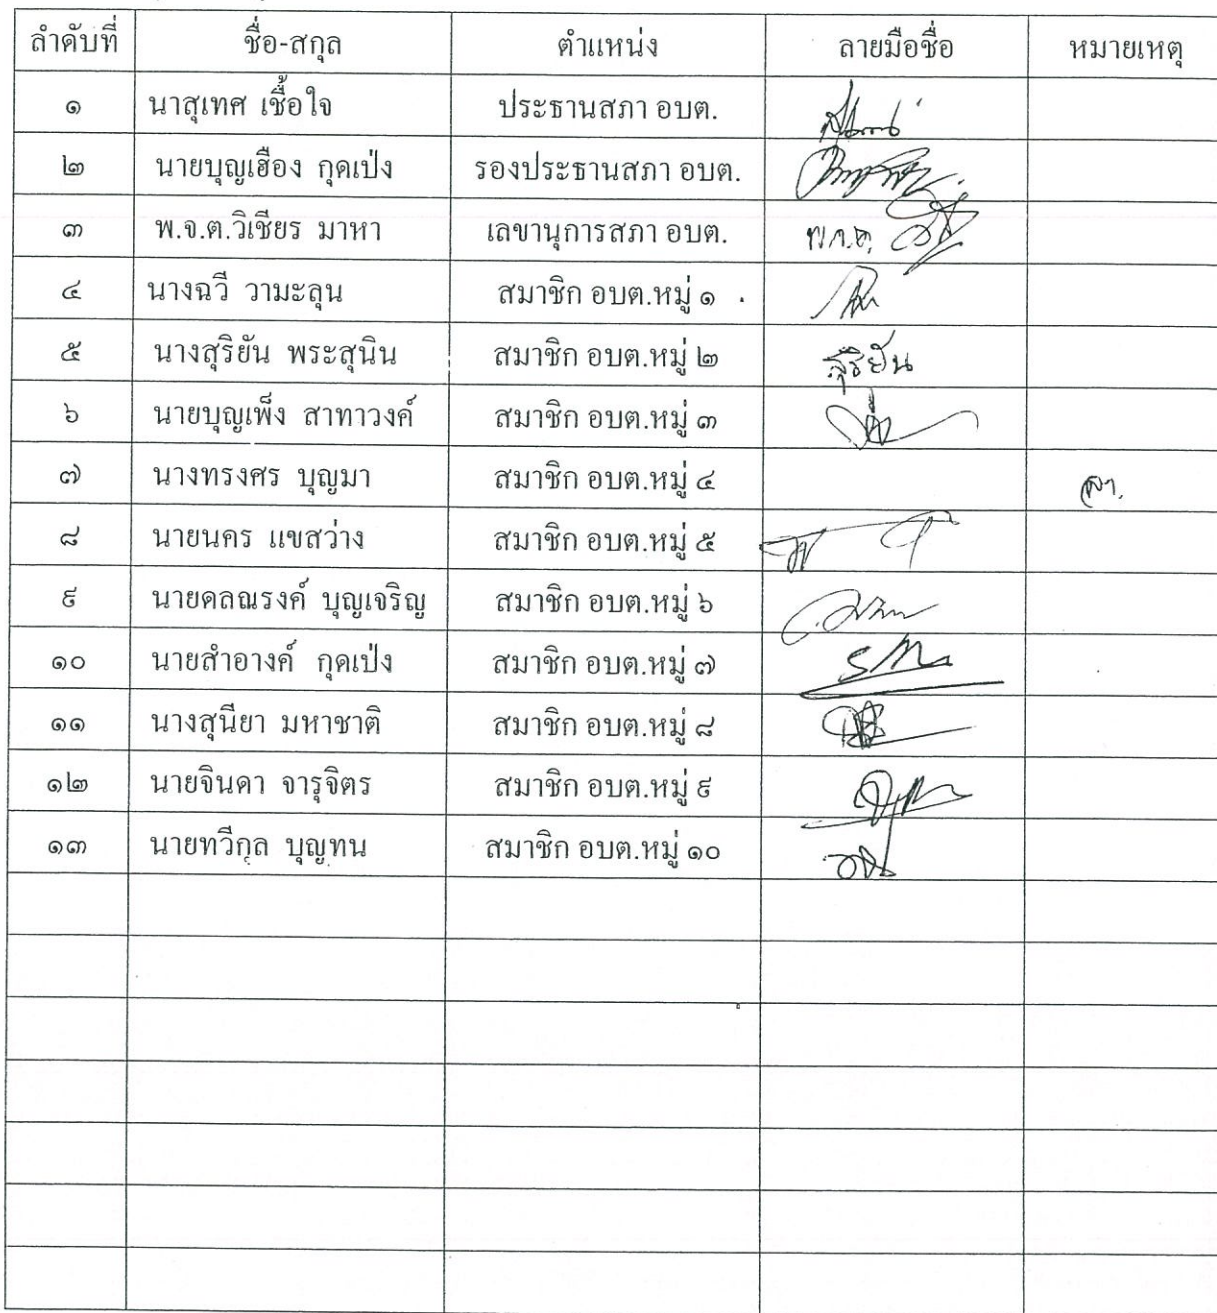 ลำดับที่ ชื่อ-สกุล ตำแหน่ง ลายมือชื่อ หมายเหตุ
๑ นาสุเทศ เชื้อใจ ประธานสภา อบต.
๒ นายบุญเฮือง กุดเป่ง รองประธานสภา อบต.
๓ พ.จ.ต.วิเชียร มาหา เลขานุการสภา อบต. พ.จ.ต.
๔ นางฉวี วามะลุน สมาชิก อบต.หมู่ ๑
๕ นางสุริยัน พระสุนิน สมาชิก อบต.หมู่ ๒ สุริยัน
๖ นายบุญเพ็ง สาทาวงค์ สมาชิก อบต.หมู่ ๓
๗ นางทรงศร บุญมา สมาชิก อบต.หมู่ ๔ ลา.
๘ นายนคร แขสว่าง สมาชิก อบต.หมู่ ๕
๙ นายดลณรงค์ บุญเจริญ สมาชิก อบต.หมู่ ๖
๑๐ นายสำอางค์ กุดเป่ง สมาชิก อบต.หมู่ ๗
๑๑ นางสุนียา มหาชาติ สมาชิก อบต.หมู่ ๘
๑๒ นายจินดา จารุจิตร สมาชิก อบต.หมู่ ๙
๑๓ นายทวีกุล บุญทน สมาชิก อบต.หมู่ ๑๐